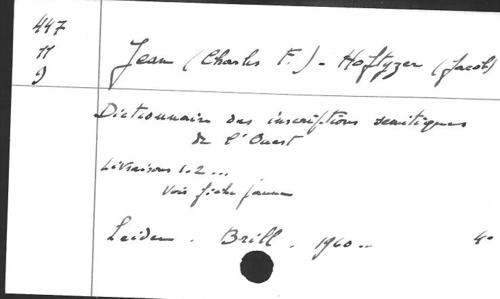 447
11
9
Jean (Charles F.) - Hoftyzer (Jacob)
Dictionnaire des inscriptions sémitiques
de l'Ouest
Livraisons 1.2 ...
Voir fiche jaune
Leiden . Brill . 1960 .. 4°